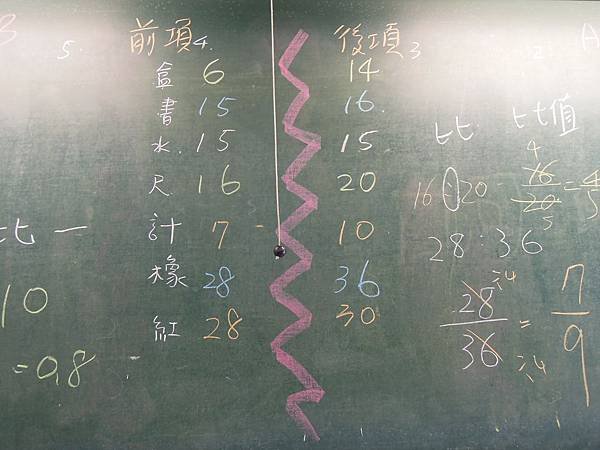 5. 前項 4. 後項 3
盒 6 14
書 15 16.
水. 15 15
尺 16 20
計 7 10
橡 28 36
紅 28 30
比一
10
=0.8
A
比 比值
16:20 16/20 4 5 = 4/5
28:36
28/36 ÷4 ÷4 = 7/9